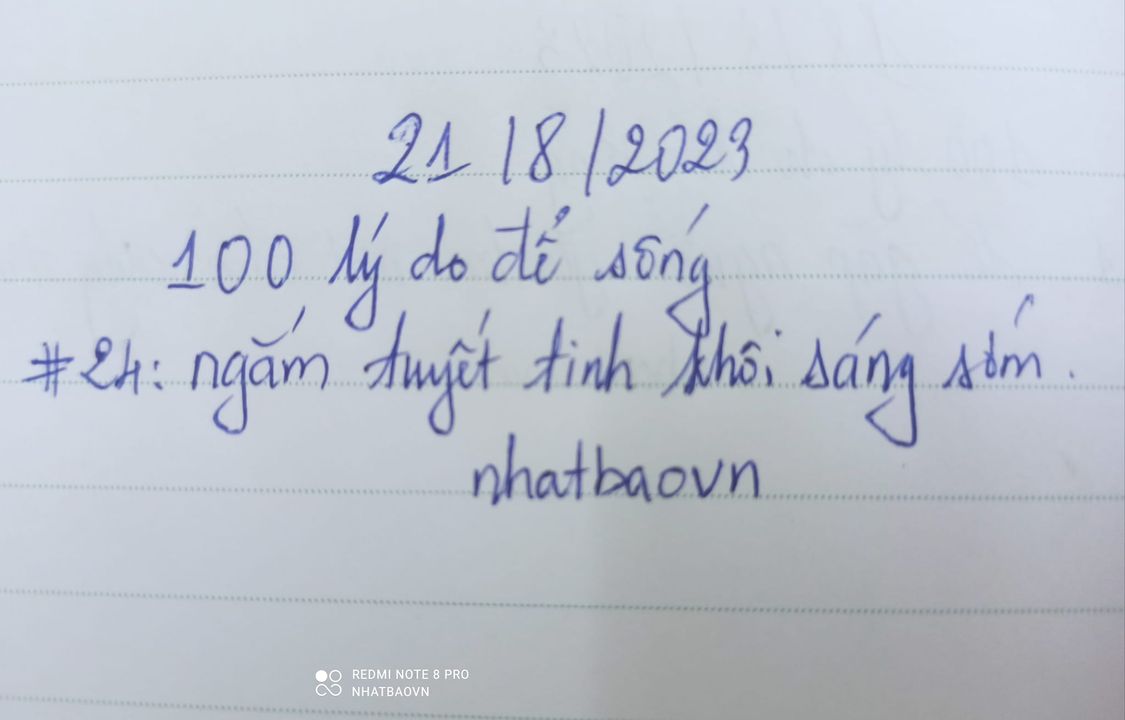 21/8/2023
100 lý do để sống
#24: ngắm tuyết tinh khôi sáng sớm.
nhatbaovn
REDMI NOTE 8 PRO
NHATBAOVN